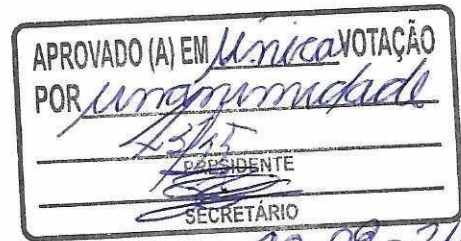 APROVADO (A) EM Única VOTAÇÃO
POR unanimidade
PRESIDENTE
SECRETÁRIO